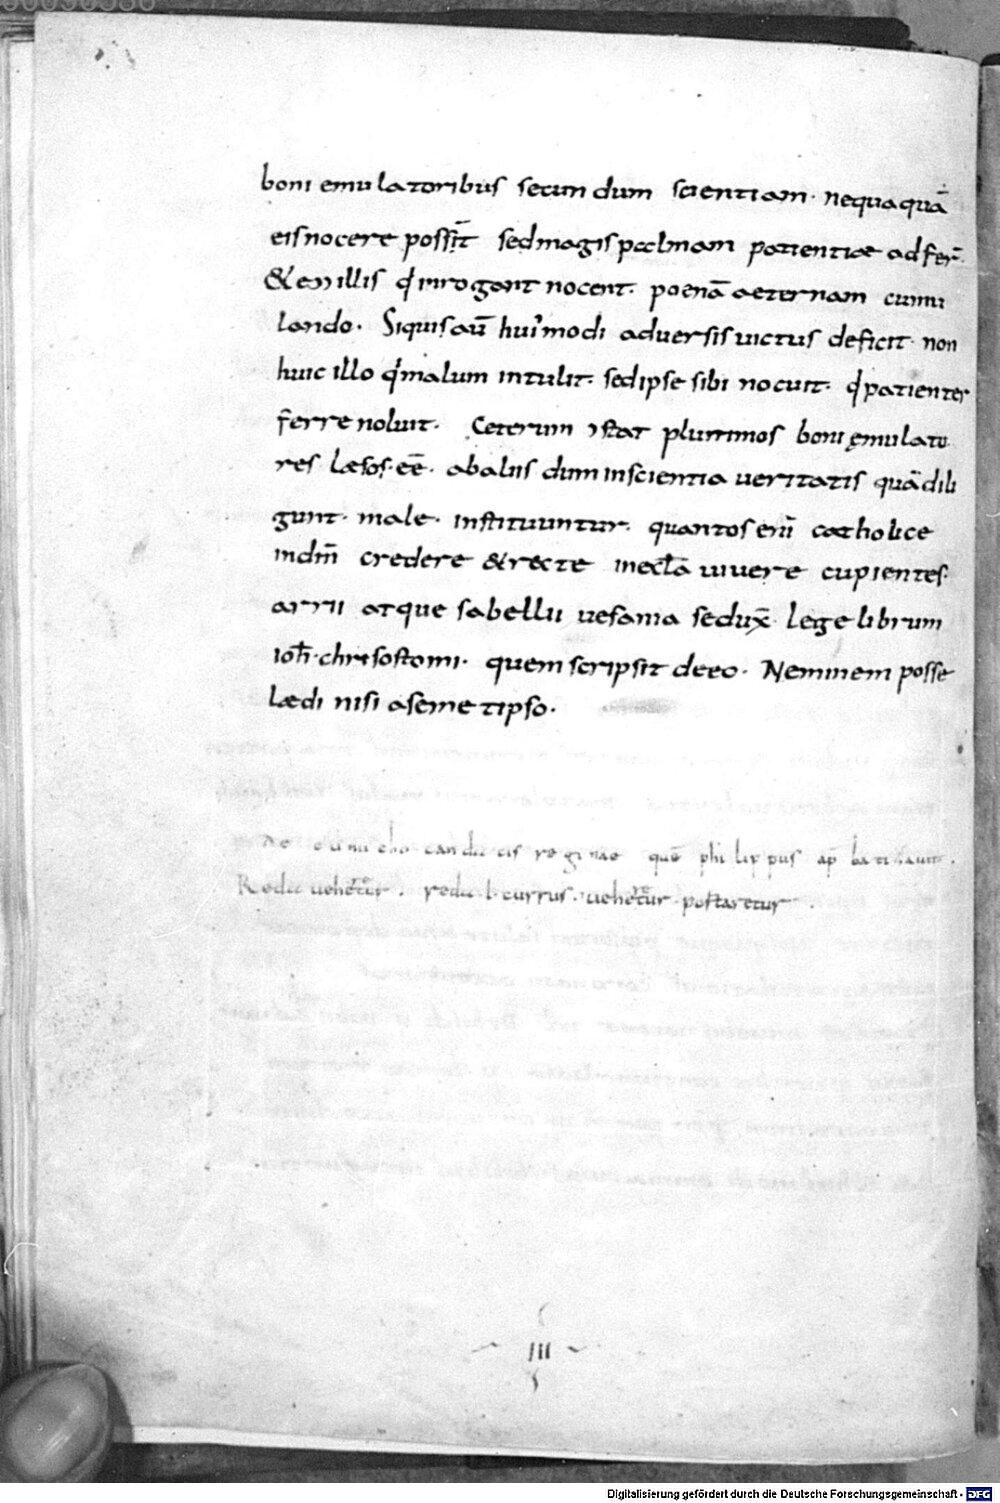 boni emulatoribus secundum scientiam· nequaquā
eis nocere possīt sed magis palmam patientiae adfer̄·
& ex illis q̄ inrogant nocent· poenā aeternam cumu
lando· Siquis aū huiꝰmodi adversis victus deficit· non
huic illo qđ malum intulit· sed ipse sibi nocuit· qđ patienter
ferre noluit· Ceterum ɔstat plurimos boni ęmulato
res læsos· eē· ab aliis dum inscientia veritatis quā dili
gunt· male· instituuntur· quantos enī catholice
in dm̄ credere & recte in ecłā vivere cupientes·
arrii atque sabellii vesania sedux̄· Lege librum
ioh̄· chrisostomi· quem scripsit de eo· Neminem posse
lædi nisi a semetipso·
De eunucho candacis reginae quē philippus ap̄ batizavit·
Redu veheretur· redu l· currus· veheretur· postaretur·
III
Digitalisierung gefördert durch die Deutsche Forschungsgemeinschaft - DFG